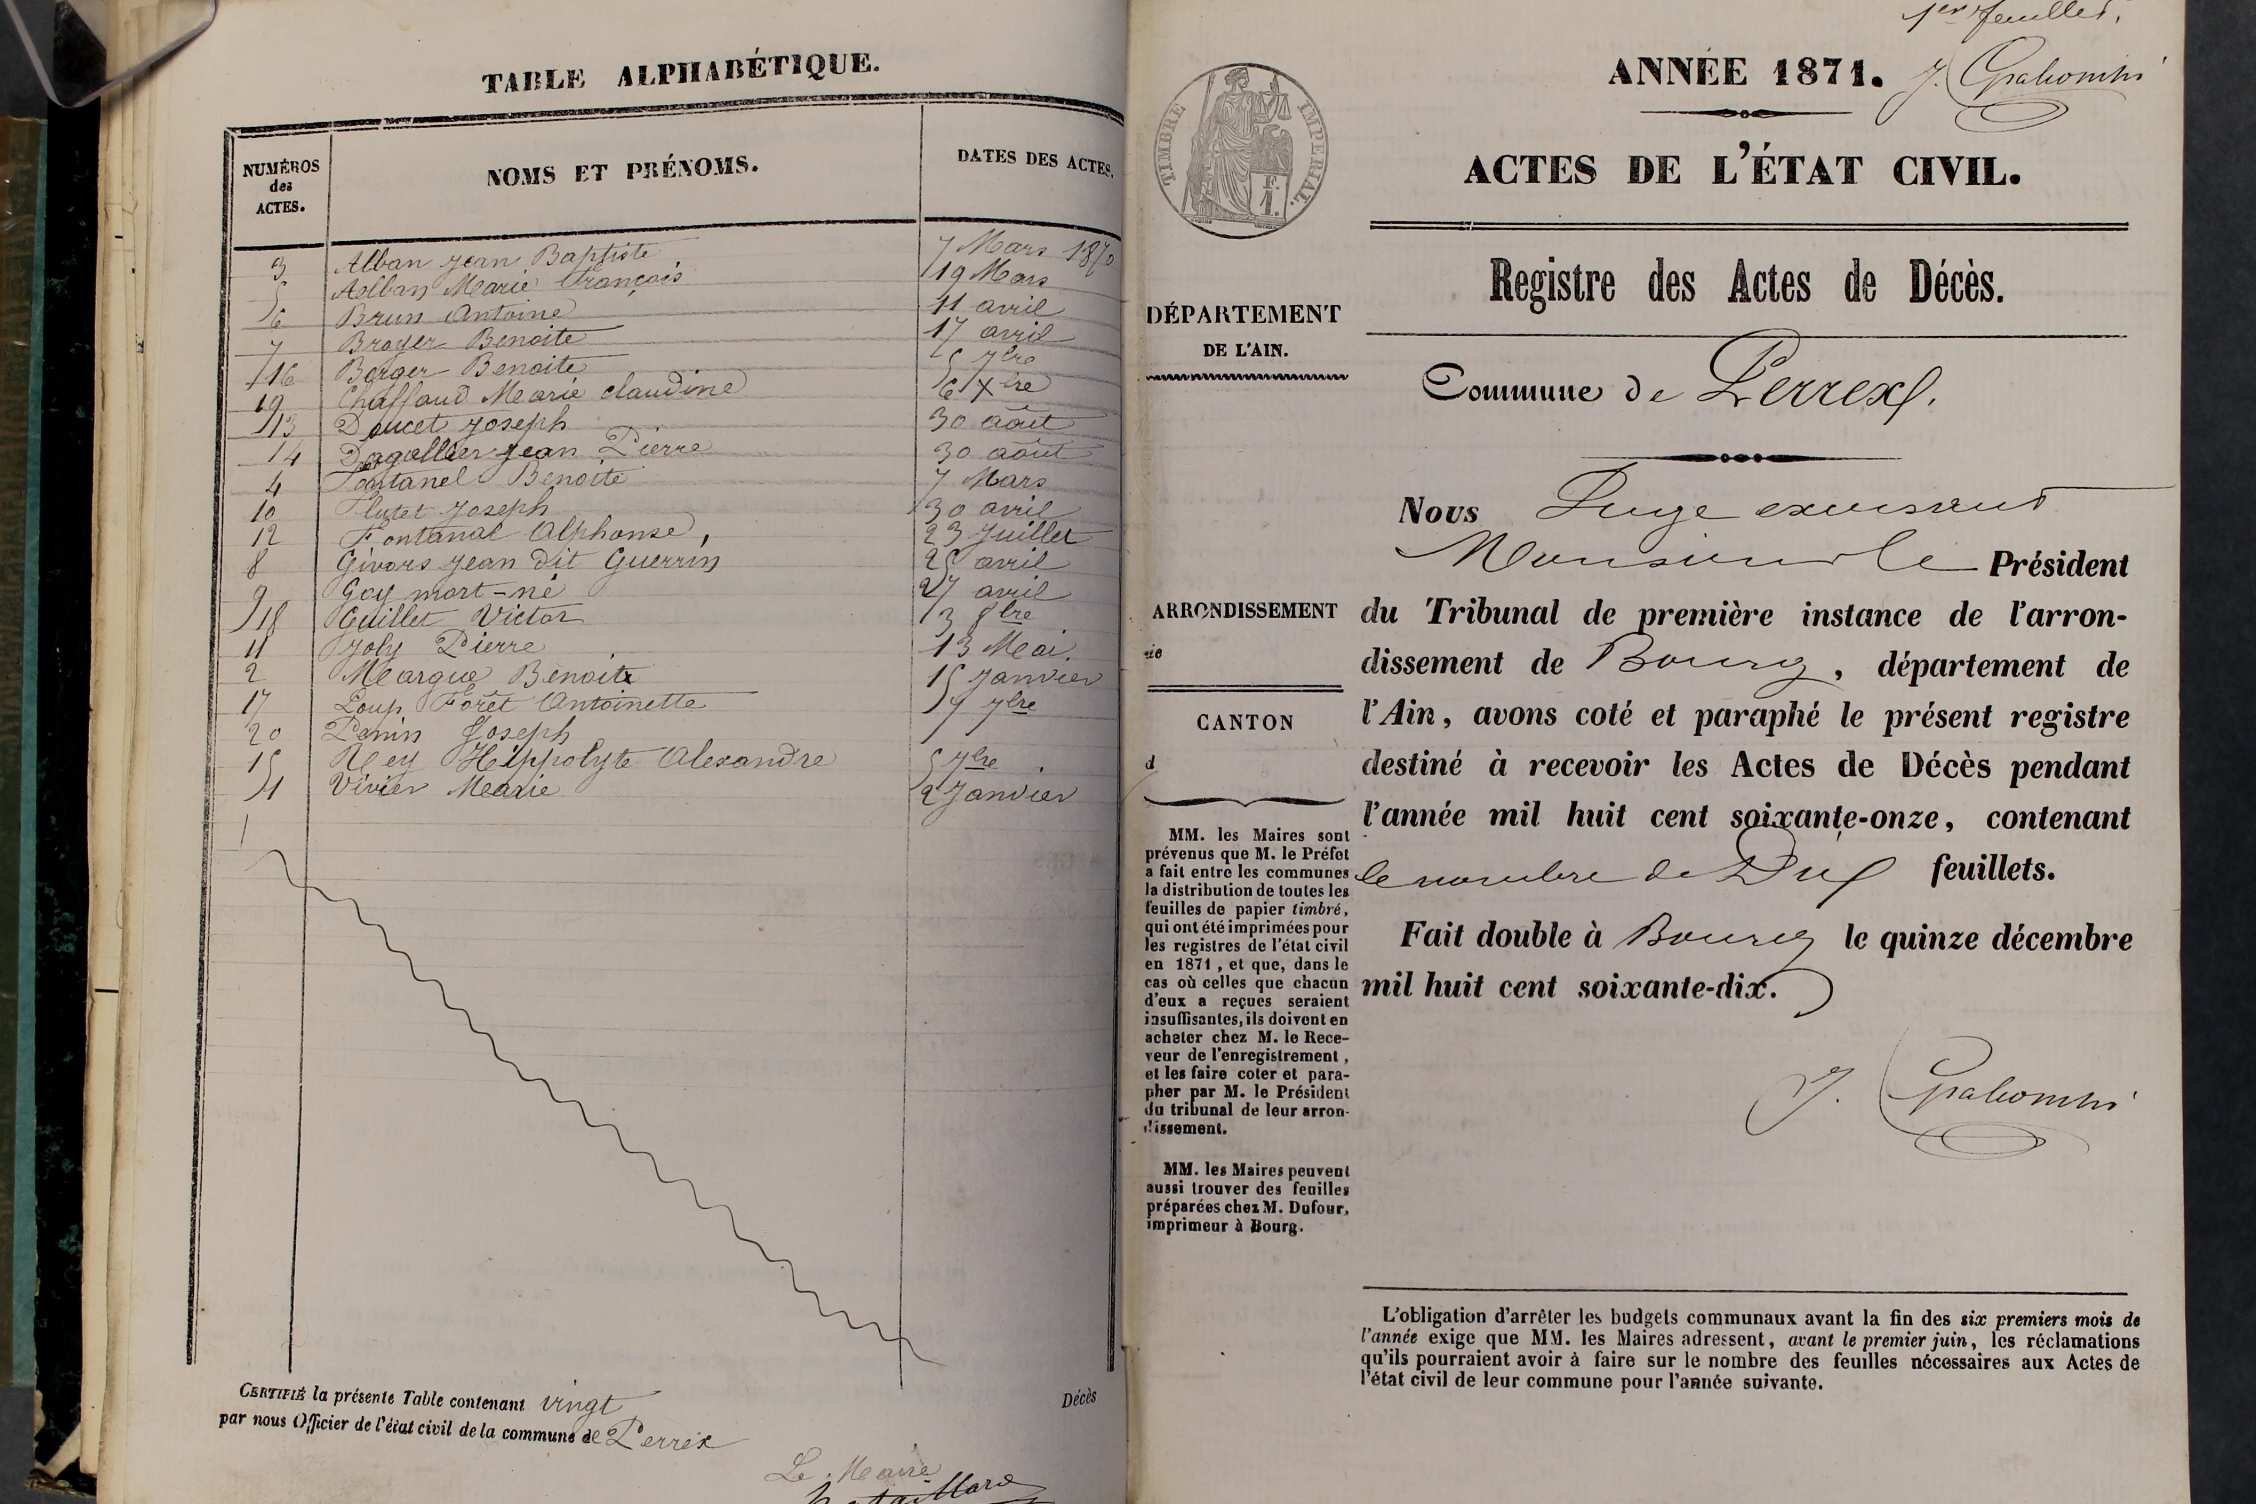 TABLE ALPHABÉTIQUE.
NUMÉROS des ACTES. NOMS ET PRÉNOMS. DATES DES ACTES.
3 Alban Jean Baptiste 7 Mars 1870
5 Alban Marie François 19 Mars
6 Brun Antoine 11 avril
7 Broyer Benoite 17 avril
16 Berger Benoite 5 7bre
19 Chaffaud Marie claudine 6 Xbre
13 Doucet Joseph 30 août
14 Dagallier Jean Pierre 30 août
4 Fontanel Benoite 7 Mars
10 Flutet Joseph 30 avril
12 Fontanal Alphonse 23 Juillet
8 Givors Jean dit Guerrin 25 avril
9 Goy mort-né 27 avril
18 Guillet Victor 3 8bre
11 Joly Pierre 13 Mai
2 Margue Benoite 15 Janvier
17 Loup Forêt Antoinette 9 7bre
20 Penin Joseph
15 Rey Hippolyte Alexandre 5 7bre
1 Vivier Marie 2 Janvier
CERTIFIÉ la présente Table contenant vingt Décès
par nous Officier de l'état civil de la commune de Perrex
Le Maire
1er feuillet.
ANNÉE 1871.
TIMBRE IMPÉRIAL.
F. 1.
ACTES DE L'ÉTAT CIVIL.
Registre des Actes de Décès.
DÉPARTEMENT
DE L'AIN.
Commune de Perrex.
ARRONDISSEMENT
de
CANTON
d
MM. les Maires sont
prévenus que M. le Préfet
a fait entre les communes
la distribution de toutes les
feuilles de papier timbré,
qui ont été imprimées pour
les registres de l'état civil
en 1871, et que, dans le
cas où celles que chacun
d'eux a reçues seraient
insuffisantes, ils doivent en
acheter chez M. le Rece-
veur de l'enregistrement,
et les faire coter et para-
pher par M. le Président
du tribunal de leur arron-
dissement.
MM. les Maires peuvent
aussi trouver des feuilles
préparées chez M. Dufour,
imprimeur à Bourg.
Nous Juge exerçant
Monsieur le Président
du Tribunal de première instance de l'arron-
dissement de Bourg, département de
l'Ain, avons coté et paraphé le présent registre
destiné à recevoir les Actes de Décès pendant
l'année mil huit cent soixante-onze, contenant
le nombre de Dix feuillets.
Fait double à Bourg le quinze décembre
mil huit cent soixante-dix.
L'obligation d'arrêter les budgets communaux avant la fin des six premiers mois de
l'année exige que MM. les Maires adressent, avant le premier juin, les réclamations
qu'ils pourraient avoir à faire sur le nombre des feuilles nécessaires aux Actes de
l'état civil de leur commune pour l'année suivante.